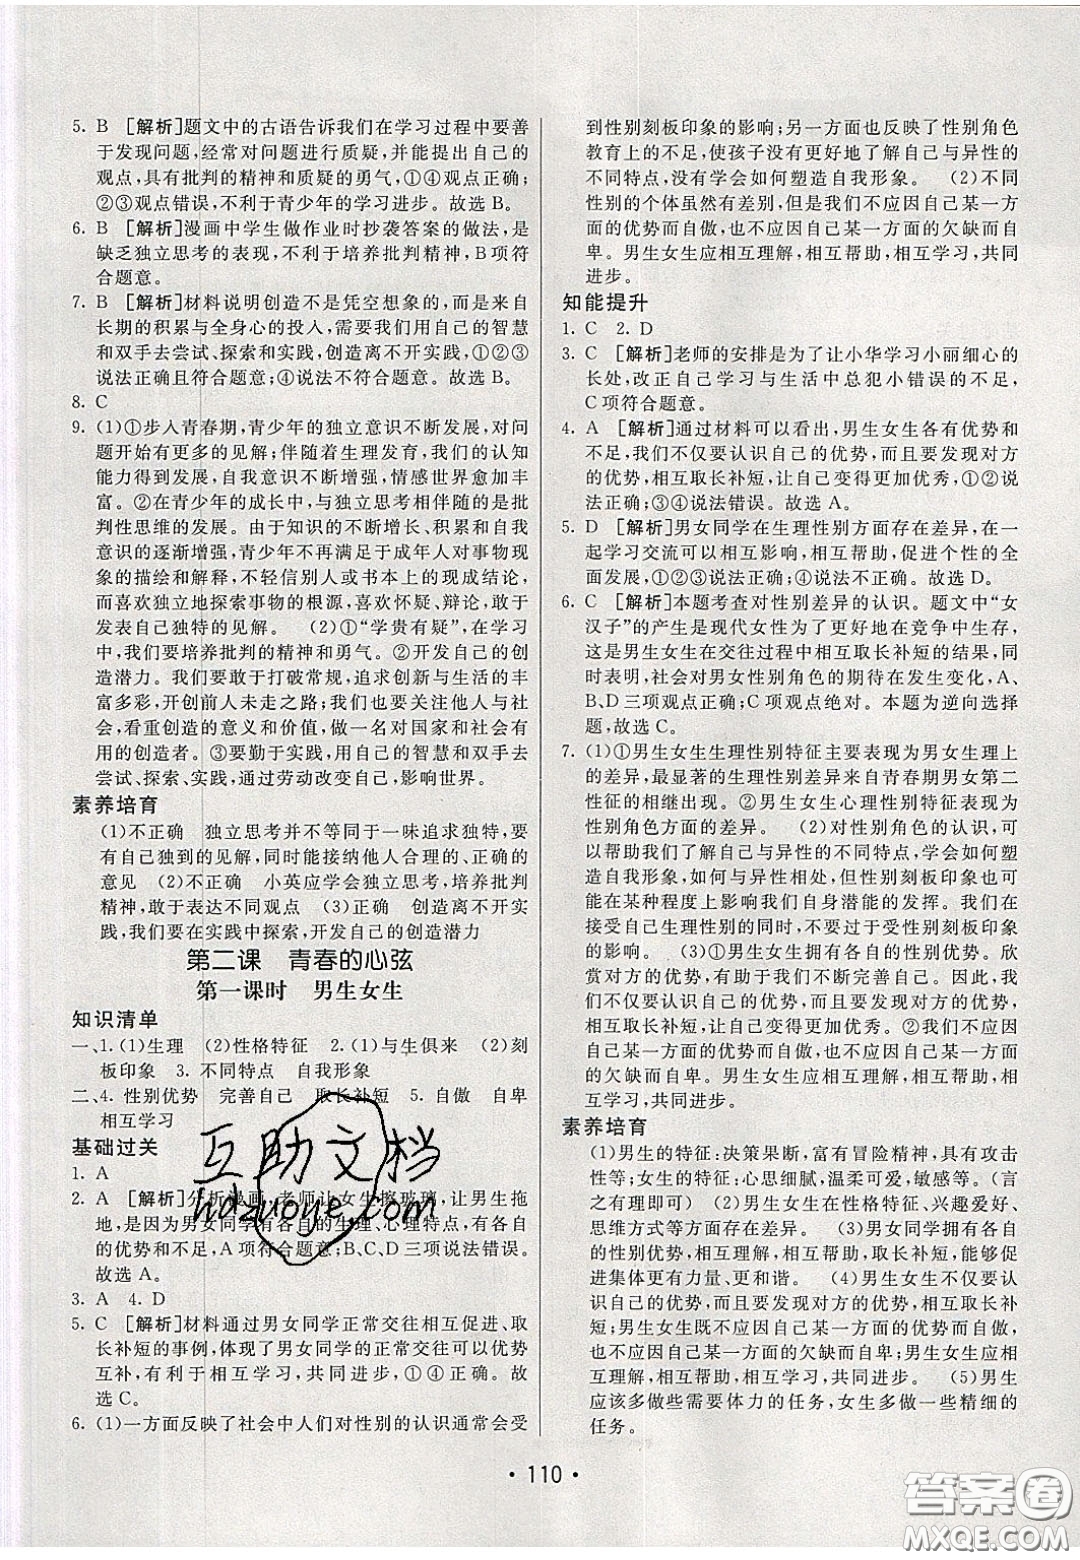 5. B　[解析]题文中的古语告诉我们在学习过程中要善
于发现问题,经常对问题进行质疑,并能提出自己的
观点,具有批判的精神和质疑的勇气,①④观点正确;
②③观点错误,不利于青少年的学习进步。故选 B。
6. B　[解析]漫画中学生做作业时抄袭答案的做法,是
缺乏独立思考的表现,不利于培养批判精神,B项符
合题意。
7. B　[解析]材料说明创造不是凭空想象的,而是来自
长期的积累与全身心的投入,需要我们用自己的智慧
和双手去尝试、探索和实践,创造离不开实践,①②③
说法正确且符合题意;④说法不符合题意。故选 B。
8. C
9. (1)①步入青春期,青少年的独立意识不断发展,对问
题开始有更多的见解;伴随着生理发育,我们的认知
能力得到发展,自我意识不断增强,情感世界愈加丰
富。②在青少年的成长中,与独立思考相伴随的是批
判性思维的发展。由于知识的不断增长、积累和自我
意识的逐渐增强,青少年不再满足于成年人对事物现
象的描绘和解释,不轻信别人或书本上的现成结论,
而喜欢独立地探索事物的根源,喜欢怀疑、辩论,敢于
发表自己独特的见解。　(2)①“学贵有疑”,在学习
中,我们要培养批判的精神和勇气。②开发自己的创
造潜力。我们要敢于打破常规,追求创新与生活的丰
富多彩,敢于开创前人未走之路;我们要关注他人与社
会,看重创造的意义和价值,做一名对国家和社会有
用的创造者。③要勤于实践,用自己的智慧和双手去
尝试、探索、实践,通过劳动改变自己,影响世界。
素养培育
(1)不正确　独立思考并不等同于一味追求独特,要
有自己独到的见解,同时能接纳他人合理的、正确的
意见　(2)不正确　小英应学会独立思考,培养批判
精神,敢于表达不同观点　(3)正确　创造离不开实
践,我们要在实践中探索,开发自己的创造潜力
第二课　青春的心弦
第一课时　男生女生
知识清单
一、1. (1)生理　(2)性格特征　2. (1)与生俱来　(2)刻
板印象　3. 不同特点　自我形象
二、4. 性别优势　完善自己　取长补短　5. 自傲　自卑
相互学习
基础过关
1. A
2. A　[解析]分析漫画,老师让女生擦玻璃,让男生拖
地,是因为男女同学有各自的生理、心理特点,有各自
的优势和不足,A项符合题意;B、C、D三项说法错误。
故选 A。
3. A　4. D
5. C　[解析]材料通过男女同学正常交往相互促进、取
长补短的事例,体现了男女同学的正常交往可以优势
互补,有利于相互学习,共同进步,①②④符合题意。
故选 C。
6. (1)一方面反映了社会中人们对性别的认识通常会受
到性别刻板印象的影响;另一方面也反映了性别角色
教育上的不足,使孩子没有更好地了解自己与异性的
不同特点,没有学会如何塑造自我形象。　(2)不同
性别的个体虽然有差别,但我们不应因自己某一方面
的优势而自傲,也不应因自己某一方面的欠缺而自
卑。男生女生应相互理解,相互帮助,相互学习,共同
进步。
知能提升
1. C　2. D
3. C　[解析]老师的安排是为了让小华学习小丽细心的
长处,改正自己学习与生活中总犯小错误的不足,
C项符合题意。
4. A　[解析]通过材料可以看出,男生女生各有优势和
不足,我们不仅要认识自己的优势,而且要发现对方
的优势,相互取长补短,让自己变得更加优秀,①②说
法正确;③④说法错误。故选 A。
5. D　[解析]男女同学在生理性别方面存在差异,在一
起学习交流可以相互影响,相互帮助,促进个性的全
面发展,①②③说法正确;④说法不正确。故选 D。
6. C　[解析]本题考查对性别差异的认识。题文中“女
汉子”的产生是现代女性为了更好地在竞争中生存,
这是男生女生在交往过程中相互取长补短的结果,同
时表明,社会对男女性别角色的期待在发生变化,A、
B、D三项观点正确;C项观点绝对。本题为逆向选择
题,故选 C。
7. (1)①男生女生生理性别特征主要表现为男女生理上
的差异,最显著的生理性别差异来自青春期男女第二
性征的相继出现。②男生女生心理性别特征表现为
性别角色方面的差异。　(2)对性别角色的认识,可
以帮助我们了解自己与异性的不同特点,学会如何塑造
自我形象,如何与异性相处,但性别刻板印象也可能
在某种程度上影响了我们自身潜能的发挥。我们在
接受自己生理性别的同时,不要过于受性别刻板印象
的影响。　(3)①男生女生拥有各自的性别优势。欣
赏对方的优势,有助于我们不断完善自己。②我们不
仅要认识自己的优势,还要发现对方的优势,相互取长
补短,让自己变得更加优秀。③我们不应因自己某
一方面的优势而自傲,也不应因自己某一方面的欠缺
而自卑。④男生女生应相互理解,相互帮助,相互学
习,共同进步。
素养培育
(1)男生的特征:决策果断,富有冒险精神,具有攻击
性等;女生的特征:心思细腻,温柔可爱,敏感等。(言
之有理即可)　(2)男生女生在性格特征、兴趣爱好、
思维方式等方面存在差异。　(3)男女同学拥有各自
的性别优势,相互理解,相互帮助,取长补短,能够促
进集体更有力量、更和谐。　(4)男生女生不仅要认
识自己的优势,还要发现对方的优势,相互取长补
短;男生女生既不应因自己某一方面的优势而自傲,
也不应因自己某一方面的欠缺而自卑;男生女生要相
互帮助,相互学习,共同进步。　(5)男生
应该多做些需要体力的任务,女生多做一些精细的
任务。
互助文档
hdzuoye.com
· 110 ·
答案圈
MXQE.COM